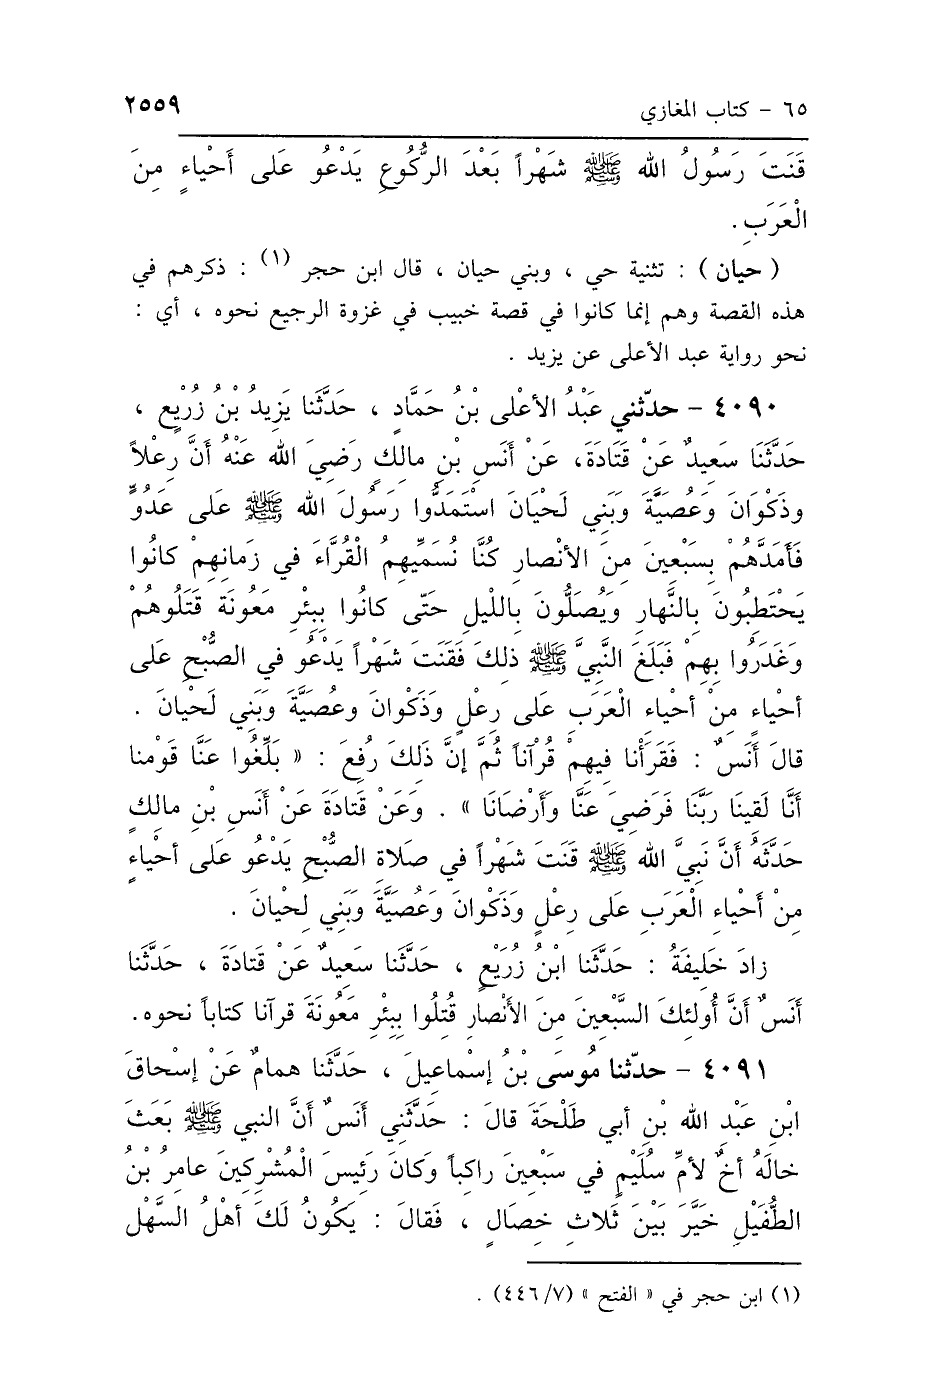 ٦٥ – كتاب المغازي ٢٥٥٩
قَنَتَ رَسُولُ الله ﷺ شَهْراً بَعْدَ الرُّكُوعِ يَدْعُو عَلى أَحْياءٍ مِنَ
الْعَرَبِ .
( حيان ) : تثنية حي ، وبني حيان ، قال ابن حجر (١) : ذكرهم في
هذه القصة وهم إنما كانوا في قصة خبيب في غزوة الرجيع نحوه ، أي :
نحو رواية عبد الأعلى عن يزيد .
٤٠٩٠ – حدّثني عَبْدُ الأَعْلى بْنُ حَمَّادٍ ، حَدَّثَنا يَزِيدُ بْنُ زُرَيْعٍ ،
حَدَّثَنَا سَعِيدٌ عَنْ قَتَادَةَ، عَنْ أَنَسِ بْنِ مالِكٍ رَضِيَ الله عَنْهُ أَنَّ رِعْلاً
وذَكْوَانَ وَعُصَيَّةَ وَبَنِي لَحْيَانَ اسْتَمَدُّوا رَسُولَ الله ﷺ عَلى عَدُوٍّ
فَأَمَدَّهُمْ بِسَبْعِينَ مِنَ الأَنْصارِ كُنَّا نُسَمِّيهِمُ الْقُرَّاءَ في زَمانِهِمْ كانُوا
يَحْتَطِبُونَ بِالنَّهارِ وَيُصَلُّونَ بِاللَّيلِ حَتّى كانُوا بِبِئْرِ مَعُونَة قَتَلُوهُمْ
وَغَدَرُوا بِهِمْ فَبَلَغَ النَّبِيَّ ﷺ ذلِكَ فَقَنَتَ شَهْراً يَدْعُو في الصُّبْحِ عَلى
أحْياءٍ مِنْ أحْياءِ الْعَرَبِ عَلى رِعْلٍ وَذَكْوانَ وعُصَيَّةَ وَبَنِي لَحْيانَ .
قالَ أَنَسٌ : فَقَرَأْنا فِيهِمْ قُرْآناً ثُمَّ إنَّ ذَلِكَ رُفِعَ : « بَلِّغُوا عَنَّا قَوْمنا
أَنَّا لَقينَا رَبَّنَا فَرَضِيَ عَنَّا وَأَرْضَانَا » . وَعَنْ قَتادَةَ عَنْ أَنَسِ بْنِ مالِكٍ
حَدَّثَهُ أَنَّ نَبِيَّ الله ﷺ قَنَتَ شَهْراً في صَلاةِ الصُّبْحِ يَدْعُو عَلَى أحْياءٍ
مِنْ أَحْياءِ الْعَرَبِ عَلَى رِعْلٍ وَذَكْوانَ وَعُصَيَّةَ وَبَنِي لِحْيانَ .
زادَ خَلِيفَةُ : حَدَّثَنا ابْنُ زُرَيْعٍ ، حَدَّثَنا سَعِيدٌ عَنْ قَتادَةَ ، حَدَّثَنا
أَنَسٌ أَنَّ أُولئِكَ السَّبْعِينَ مِنَ الأَنْصارِ قُتِلُوا بِبِئْرِ مَعُونَةَ قرآنا كتاباً نحوه.
٤٠٩١ – حدّثنا مُوسَى بْنُ إسْماعِيلَ ، حَدَّثَنا همامٌ عَنْ إسْحاقَ
ابْنِ عَبْدِ الله بْنِ أبي طَلْحَةَ قالَ : حَدَّثَنِي أَنَسٌ أَنَّ النبي ﷺ بَعَثَ
خالَهُ أخٌ لأمِّ سُلَيْمٍ في سَبْعِينَ راكِباً وَكانَ رَئِيسَ الْمُشْرِكِينَ عامِرُ بْنُ
الطُّفَيْلِ خَيَّرَ بَيْنَ ثَلاثِ خِصَالٍ ، فَقالَ : يَكُونُ لَكَ أهْلُ السَّهْلِ
(١) ابن حجر في « الفتح » (٤٤٦/٧) .